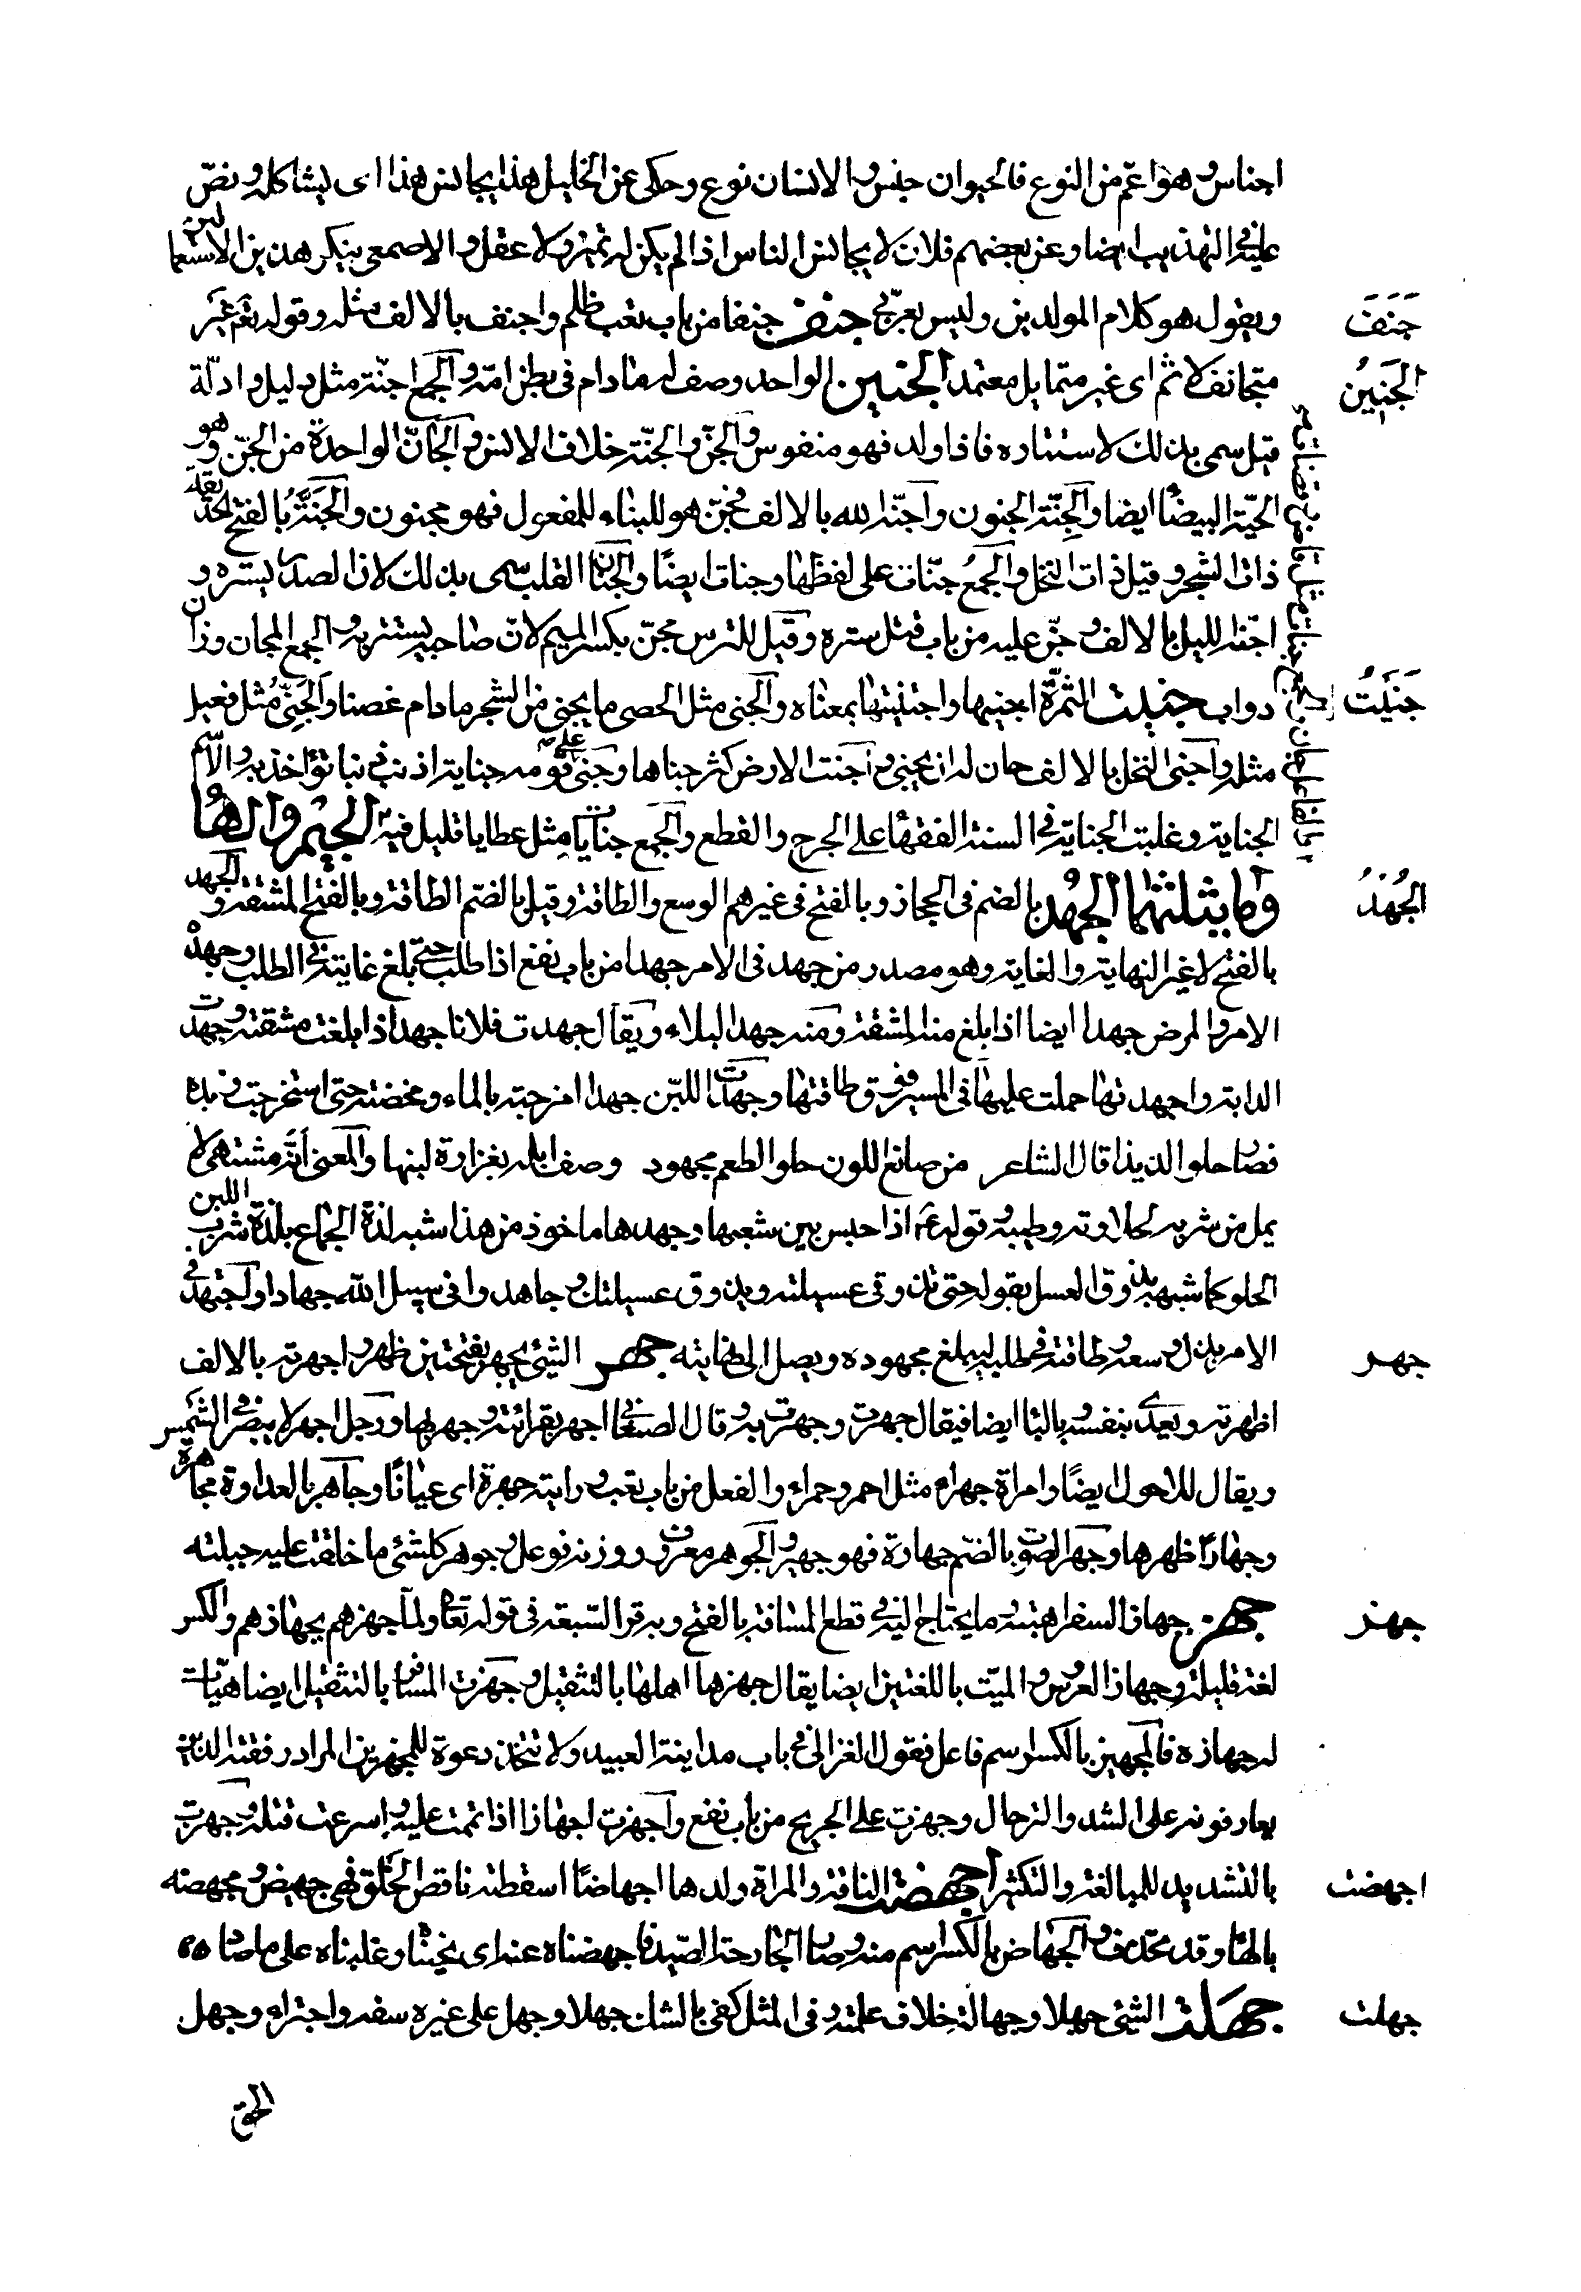 اجناس وهو اعم من النوع فالحيوان جنس والانسان نوع وحكى عن الخليل هذا يجانس هذا اى يشاكله ونص
عليه فى التهذيب ايضا وعن بعضهم فلان لا يجانس الناس اذا لم يكن له تميز ولا عقل والاصمعى ينكر هذين الاستعمالين
ويقول هو كلام المولدين وليس بعربى جنف جنفا من باب تعب ظلم واجنف بالالف مثله وقوله تعم غير
جنف
متجانف لاثم اى غير متمايل معتمد الجنين الواحد وصف له ما دام فى بطن امه والجمع اجنة مثل دليل وادلة
الجنين
قيل سمى بذلك لاستتاره فاذا ولد فهو منفوس والجن والجنة خلاف الانس والجان الواحدة من الجن وهو
الحية البيضا ايضا والجنة الجنون واجنه الله بالالف فجن هو للبناء للمفعول فهو مجنون والجنة بالفتح الحديقة
ذات الشجر وقيل ذات النخل والجمع جنات على لفظها وجنات ايضا والجنان القلب سمى بذلك لان الصدر يستره و
اجنه الليل بالالف وجن عليه من باب قتل ستره وقيل للترس مجن بكسر الميم لان صاحبه يستتر به والجمع المجان وزان
دواب جنيت الثمرة اجنيها واجتنيتها بمعناه والجنى مثل الحصى ما يجنى من الشجر ما دام غضا والجنى مثل فعيل
جنيت
مثله واجنى النخل بالالف حان له ان يجنى واجنت الارض كثر جناها وجنى على قومه جناية اذنب ذنبا يؤاخذ به والاسم
الجناية وغلبت الجناية فى السنة الفقها على الجرح والقطع والجمع جنايات وجنايا مثل عطايا قليل فيه الجيم والها
وما يثلثهما الجهد بالضم فى الحجاز وبالفتح فى غيرهم الوسع والطاقة وقيل بالضم الطاقة وبالفتح المشقة والجهد
الجهد
بالفتح لا غير النهاية والغاية وهو مصدر من جهد فى الامر جهدا من باب نفع اذا طلب حتى بلغ غايته فى الطلب وجهده
الامر والمرض جهدا ايضا اذا بلغ منه المشقة ومنه جهد البلاء ويقال جهدت فلانا جهدا اذا بلغت مشقته وجهدت
الدابة واجهدتها حملت عليها فى السير فوق طاقتها وجهدت اللبن جهدا امزجته بالماء ومخضته حتى استخرجت زبده
فصار حلوا لذيذا قال الشاعر من صانع اللون حلو الطعم مجهود وصف ابله بغزارة لبنها والمعنى انه مشتهى لا
يمل من شربه لحلاوته وطيبه وقوله عم اذا جلس بين شعبها وجهدها ماخوذ من هذا شبه لذة الجماع بلذة شرب اللبن
الحلو كما شبهه بذوق العسل بقوله حتى تذوقى عسيلته ويذوق عسيلتك وجاهد وا فى سبيل الله جهادا واجتهد فى
الامر بذل وسعه وطاقته فى طلبه ليبلغ مجهوده ويصل الى نهايته جهر الشئ يجهر بفتحتين ظهر واجهرته بالالف
جهر
اظهرته ويعدى بنفسه وبالبا ايضا فيقال جهرته وجهرت به وقال الصنعانى اجهر بقرائته وجهر بها ورجل اجهر لا يبصر فى الشمس
ويقال للاحول ايضا وامراة جهراء مثل احمر وحمراء والفعل من باب تعب ورايته جهرة اى عيانا وجاهر بالعداوة مجاهرة
وجهارا ظهرها وجهر الصوت بالضم جهارة فهو جهير والجوهر معروف ووزنه فوعل وجوهر كل شئ ما خلقت عليه جبلته
جهز جهاز السفر اهبته وما يحتاج اليه فى قطع المسافة بالفتح وبه قرا السبعة فى قوله تعا ولما جهزهم بجهازهم والكسر
جهز
لغة قليلة وجهاز العروس والميت باللغتين ايضا يقال جهزها اهلها بالتثقيل وجهزت المسافر بالتثقيل ايضا هيات
له جهازه فالمجهز بالكسر اسم فاعل فقول الغزالى فى باب مداينة العبيد ولا تتخذ دعوة للمجهزين المراد رفقته الذين
يعاونونه على الشد والترحال وجهزت على الجريح من باب نفع واجهزت اجهازا اذا تممت عليه واسرعت قتله وجهزت
بالتشديد للمبالغة والتكثير اجهضت الناقة والمراة ولدها اجهاضا اسقطته ناقص الخلق فهى جهيض ومجهضة
اجهضت
بالها وقد تحذف والجهاض بالكسر اسم منه وصاد الجارحة الصيد فاجهضناه عنه اى نحيناه وغلبناه على ما صاده
جهلت الشئ جهلا وجهالة خلاف علمته وفى المثل كفى بالشك جهلا وجهل على غيره سفه واجتراء وجهل
جهلت
الحق